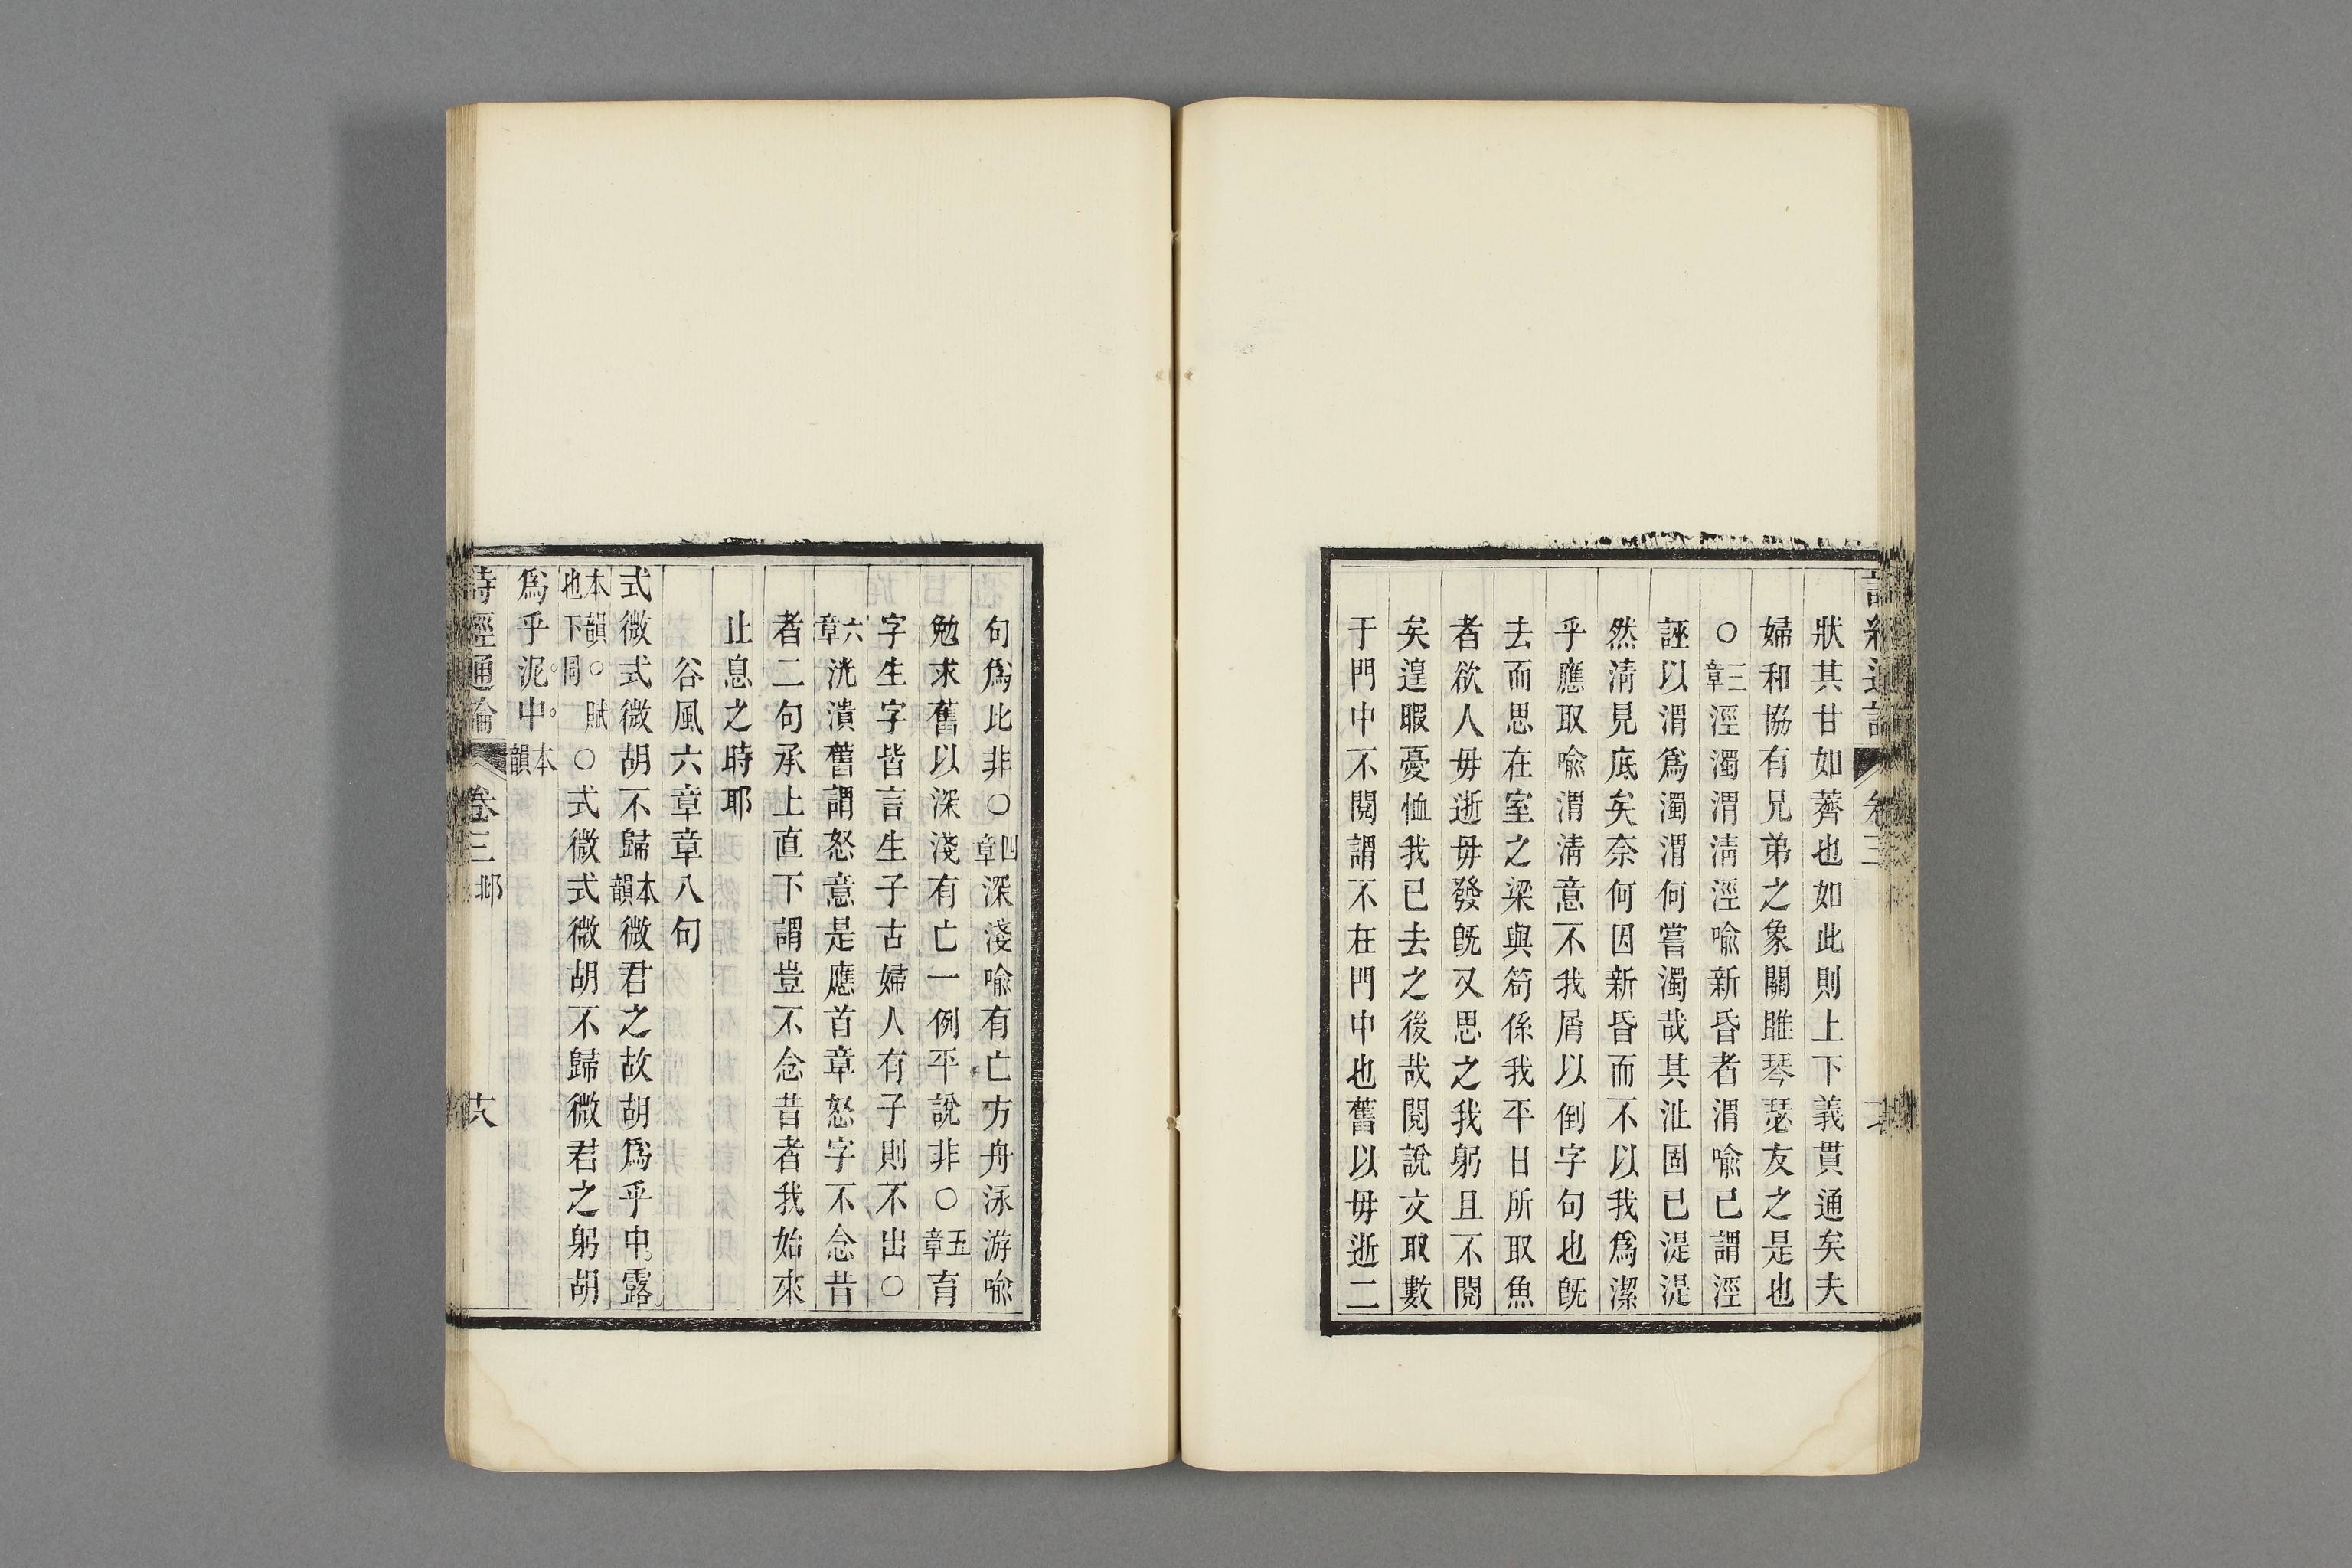 狀其甘如薺也如此則上下義貫通矣夫
婦和協有兄弟之象關雎琴瑟友之是也
○三章涇濁渭淸涇喻新昏者渭喻己謂涇
誣以渭爲濁渭何嘗濁哉其沚固已湜湜
然淸見底矣奈何因新昏而不以我爲潔
乎應取喻渭淸意不我屑以倒字句也旣
去而思在室之梁與笱係我平日所取魚
者欲人毋逝毋發旣又思之我躬且不閱
矣遑暇憂恤我已去之後哉閱說文取數
于門中不閱謂不在門中也舊以毋逝二
句爲比非○四章深淺喻有亡方舟泳游喻
勉求舊以深淺有亡一例平說非○五章育
字生字皆言生子古婦人有子則不出○
六章洸潰舊謂怒意是應首章怒字不念昔
者二句承上直下謂豈不念昔者我始來
止息之時耶
谷風六章章八句
式微式微胡不歸本韻微君之故胡爲乎中露
本韻○賦也下同○式微式微胡不歸微君之躬胡
爲乎泥中本韻
詩經通論 卷三 邶 十八